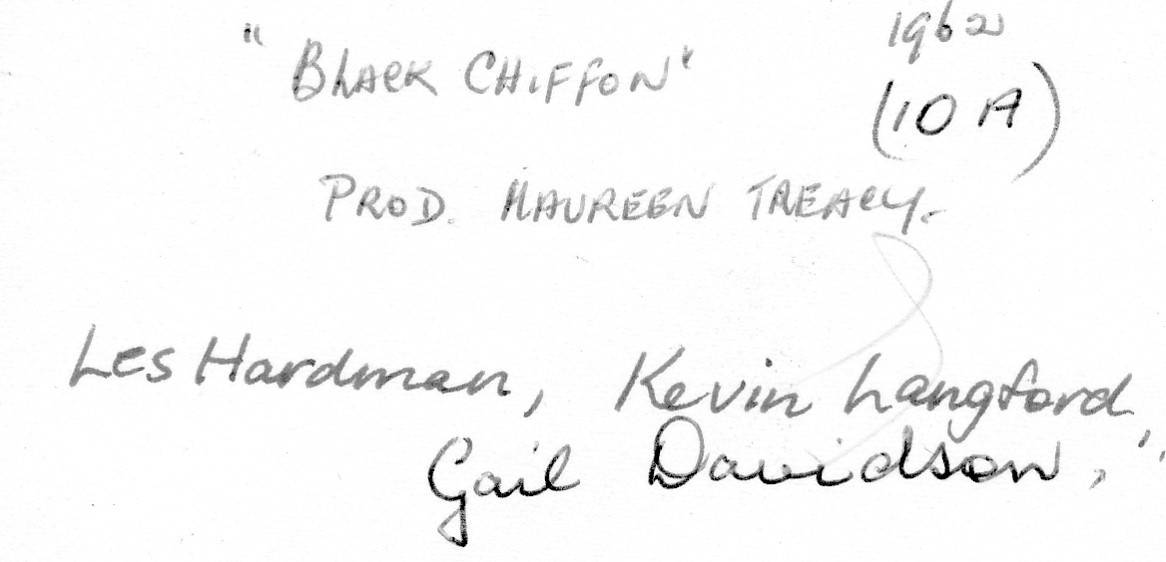 1962
"BLACK CHIFFON"
(10 A)
PROD. MAUREEN TREACY.
Les Hardman, Kevin Langford,
Gail Davidson,